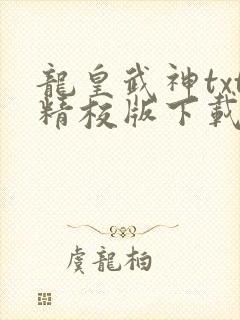 龍皇武神txt
精校版下載
虞龍柏